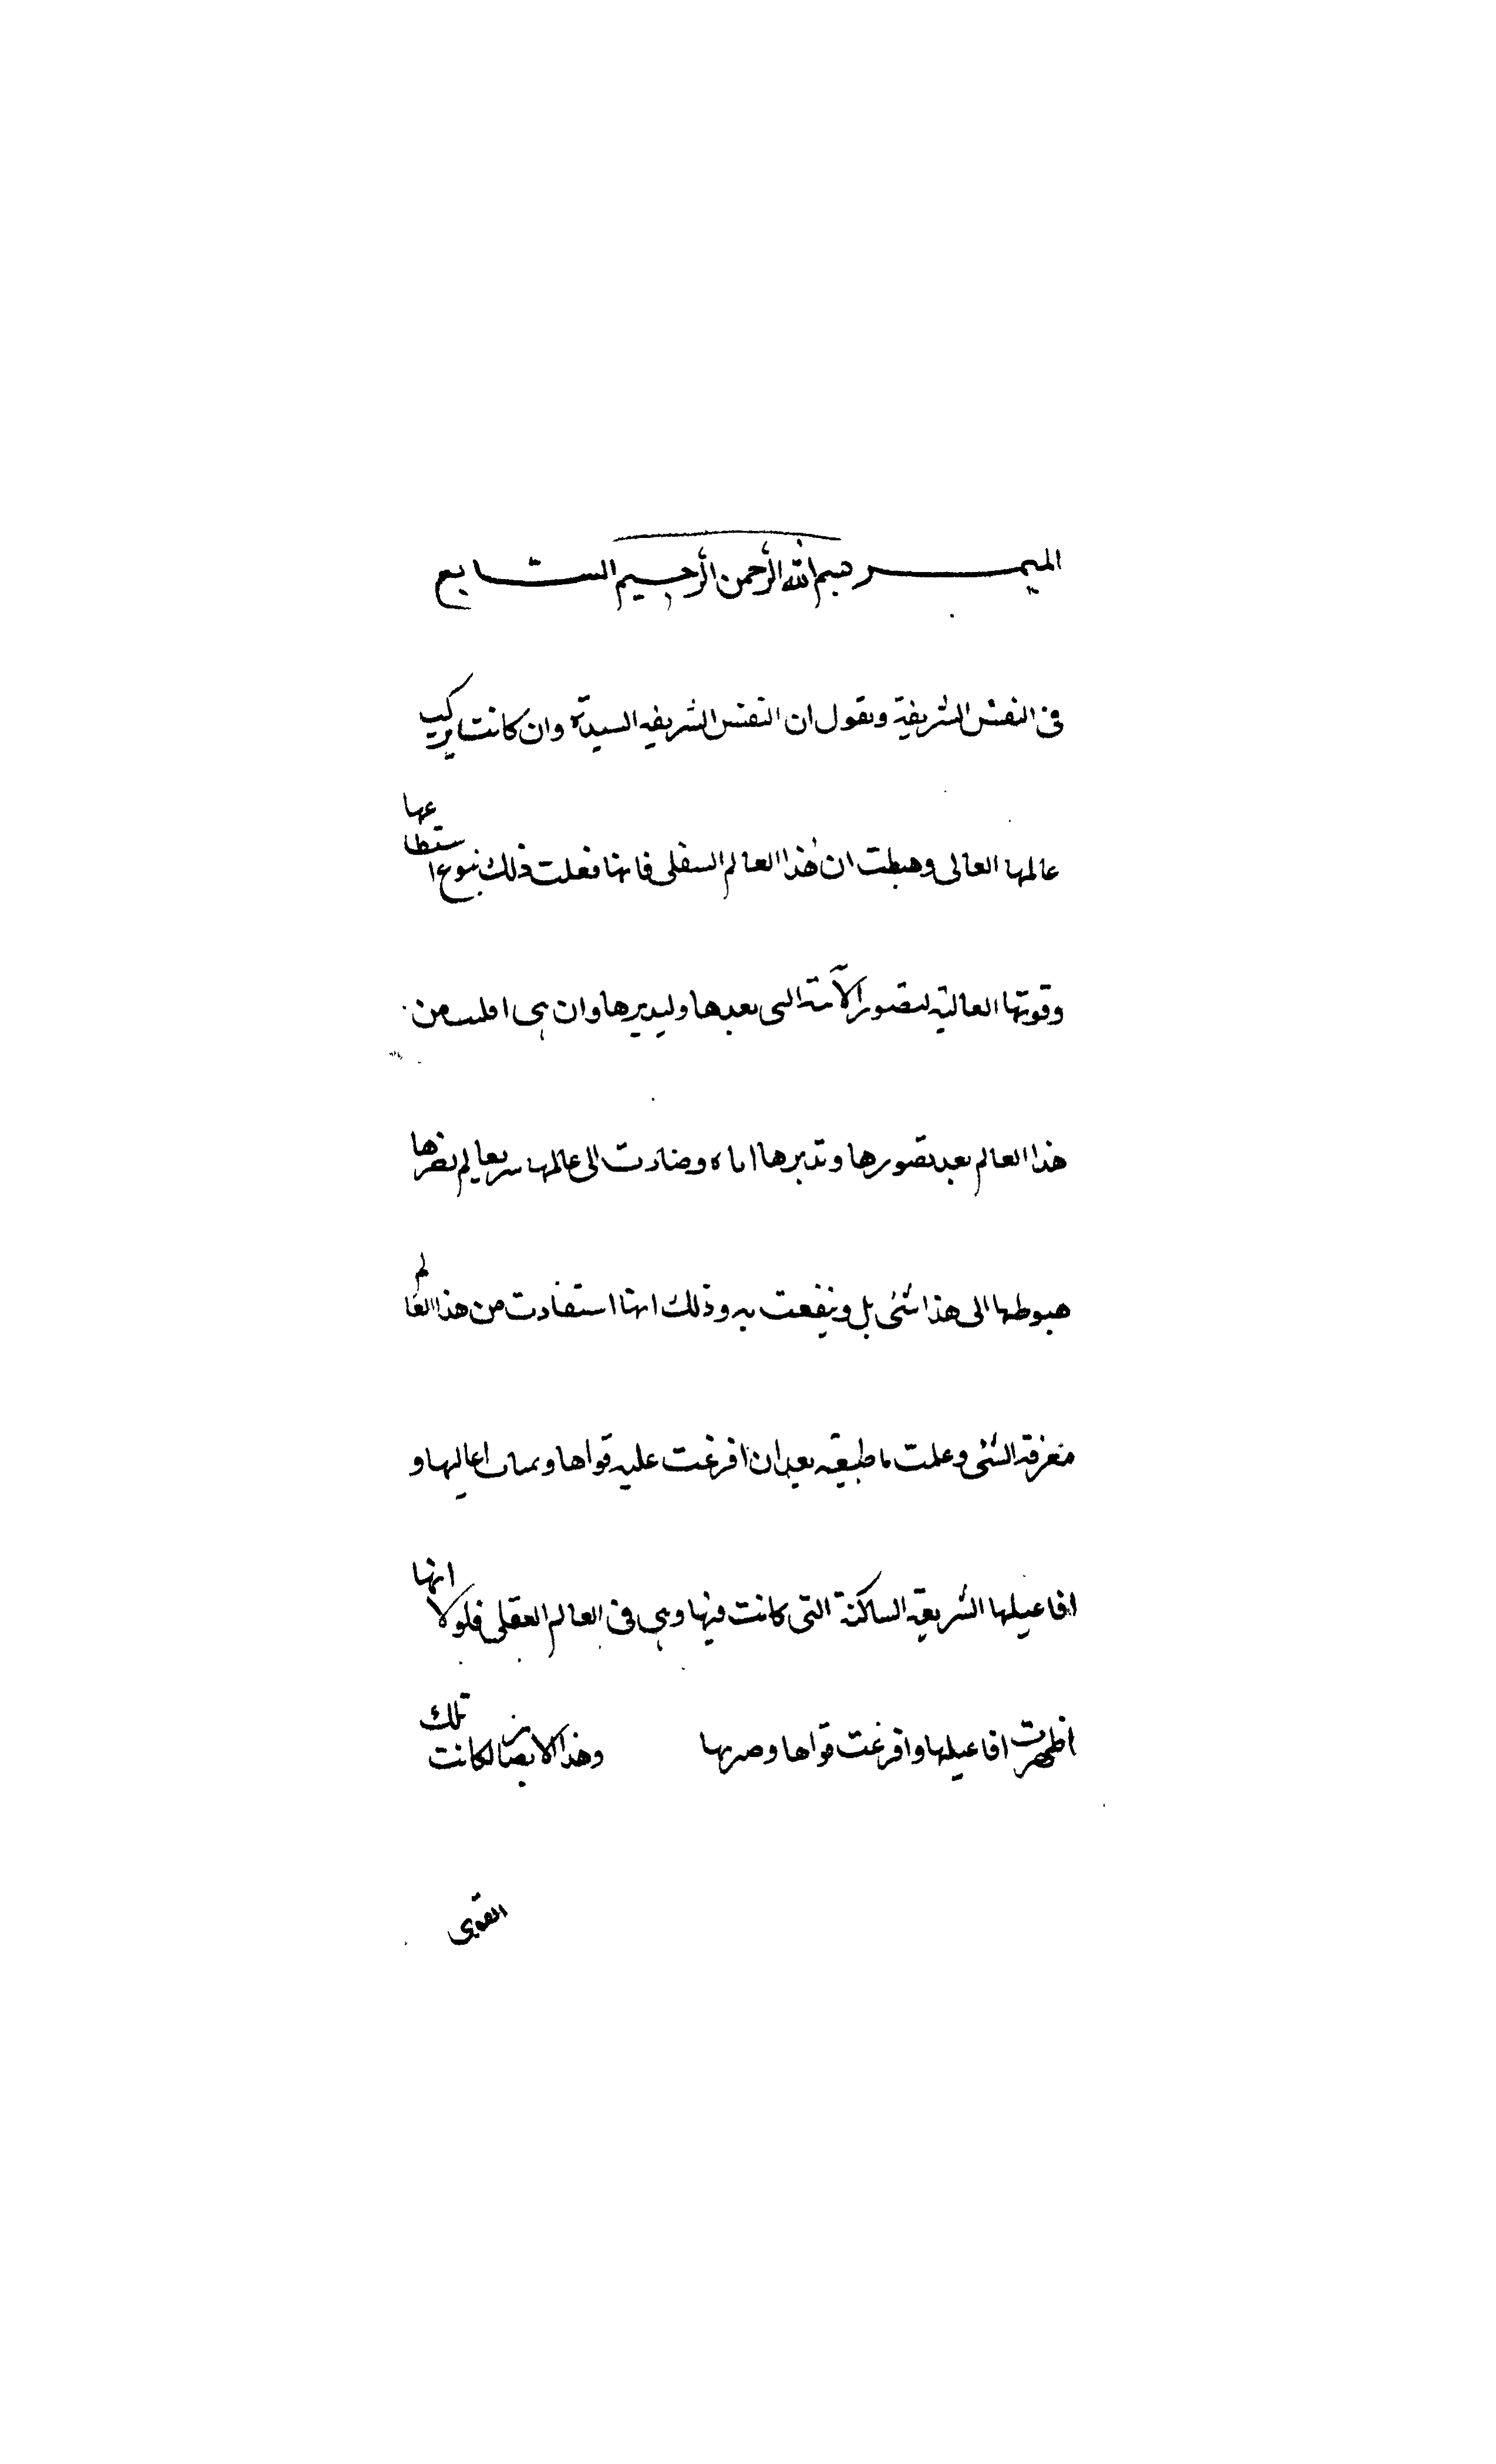 الميمر بسم الله الرحمن الرحيم السابع
فى النفس الشريفة ونقول ان النفس الشريفه السيدة وان كانت تركت
عالمها العالى وهبطت ان هذا العالم السفلى فانها فعلت ذلك بنوع استطاعها
وقوتها العالية لتصور الآنية التى بعدها وليدبرها وان هى افلتت من
هذا العالم بعد تصورها وتدبرها اياه وصارت الى عالمها سريعا لم يضرها
هبوطها الى هذا شئى بل وينفعت به وذلك انها استفادت من هذا العالم
معرفة الشئى وعلمت ما طبيعته بعد ان افرغت عليه قواها اعاليها و
افاعيلها الشريفة الساكنة التى كانت فيها وهى فى العالم العقلى فلولا انها
اظهرت افاعيلها وافرغت قواها وصيرتها وهذا الابصار لكانت تلك
القوى